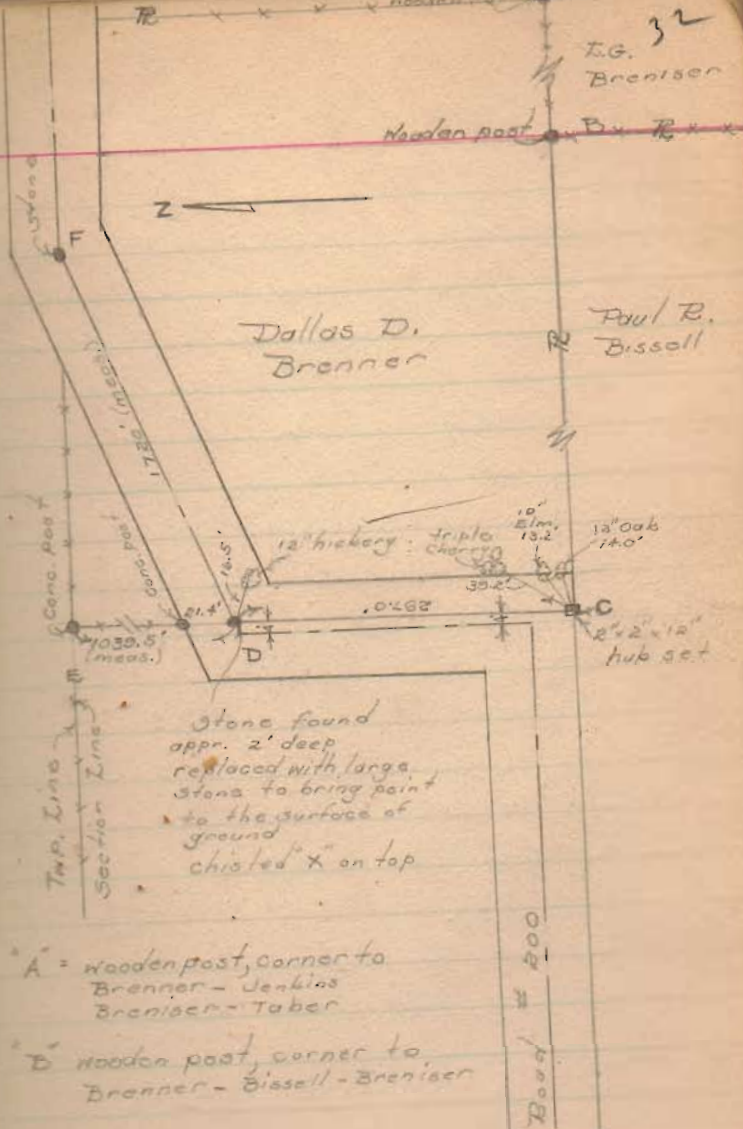 32
Wooden
R
T.G.
Breniser
Wooden post
B
R
Stone
F
Z
Dallas D.
Brenner
R
Paul R.
Bissell
1728' (meas.)
Conc. post
Conc. post
12" hickory
triple
cherry
10"
Elm.
13.2'
12" Oak
14.0'
16.5'
39.2'
21.4'
297.0'
C
1039.5'
(meas.)
D
2" x 2" x 12"
hub set
E
Stone found
appr. 2' deep
replaced with large
stone to bring point
to the surface of
ground
chisled "X" on top
Twp. Line
Section Line
"A" = wooden post, corner to
Brenner - Jenkins
Breniser - Taber
"B" wooden post, corner to
Brenner - Bissell - Breniser
Road # 200